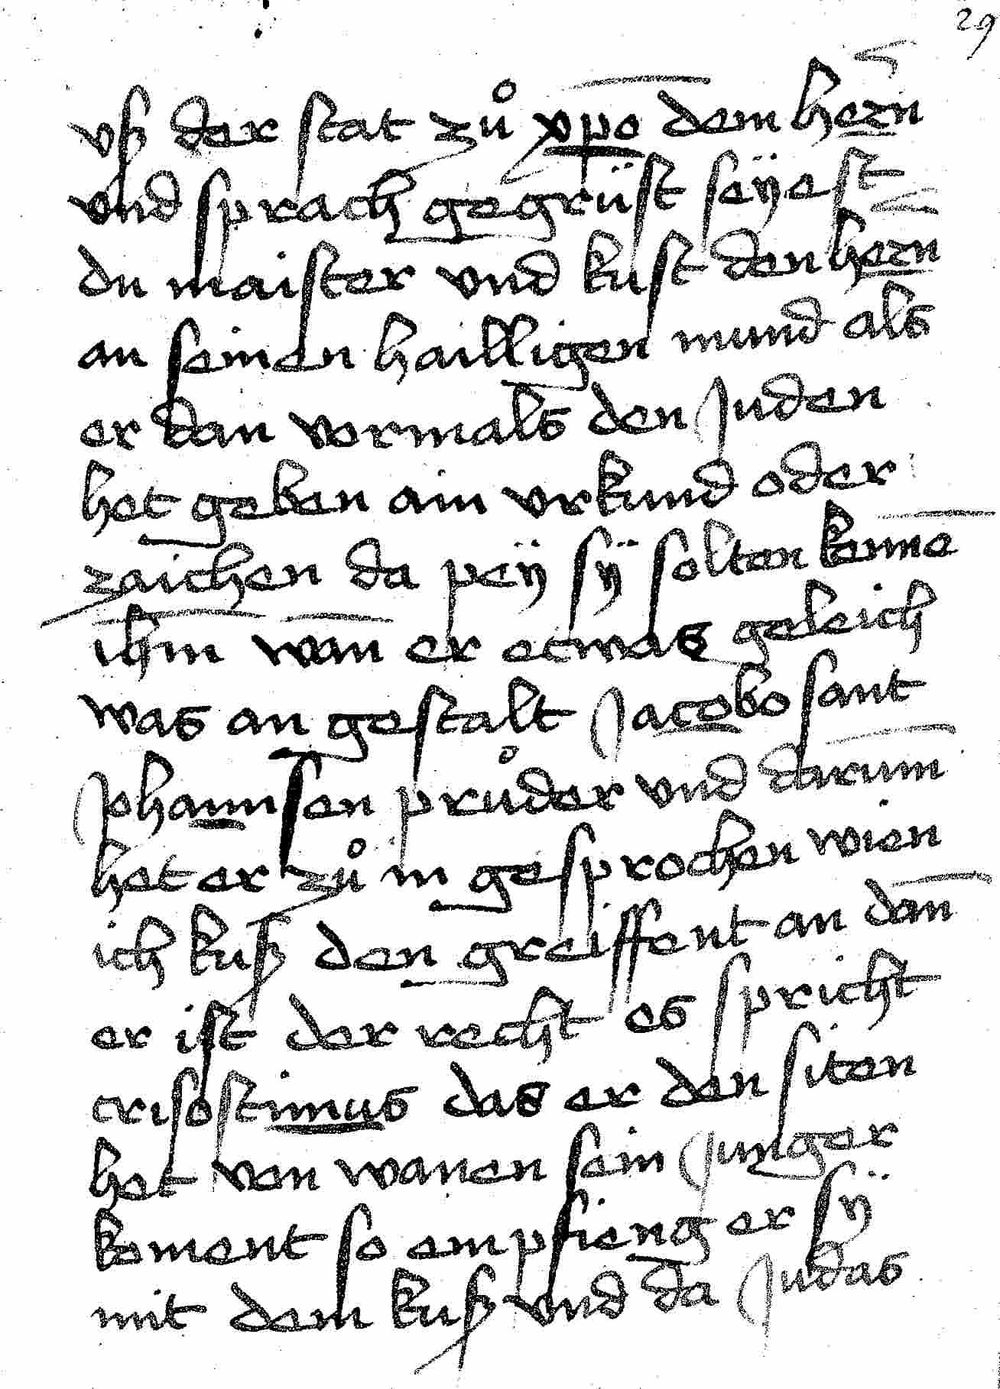 29
vß der stat zů xp̄o dem hern̄
vnd sprach gegrüst seÿest
du maister vnd kust den hern̄
an seinen hailligen mund als
er dan vormals den Juden
het geben ain vrkund oder
zaichen da peÿ sÿ solten kenne̅
ihm wan er etwas geleich
was an gestalt Jacobo sant
Johannsen průder vnd darum̄
het er zů im gesprochen wien
ich kuß den greiffent an dan̄
er ist der recht es spricht
crisostimus das er den siten
het ven wanen sein Junger
koment so empfieng er sÿ
mit dem kuß vnd da Judas